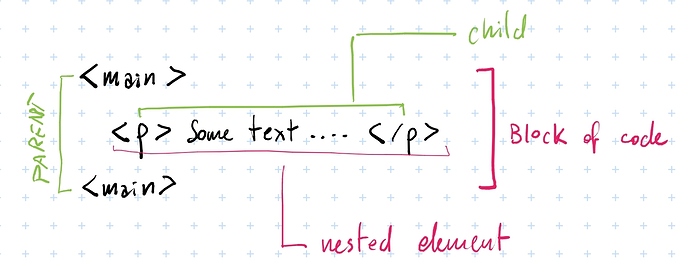 child
<main>
PARENT
<p> Some text .... </p>
Block of code
<main>
nested element